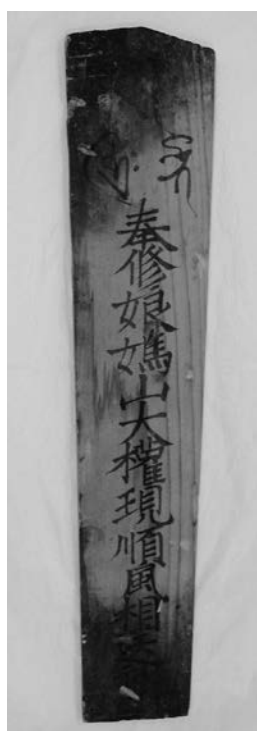 奉修娘媽山大權現順風相送